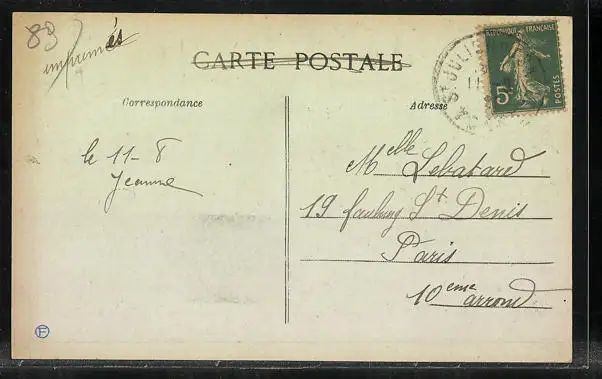 89
imprimés
CARTE POSTALE
RÉPUBLIQUE FRANÇAISE
5c
POSTES
ST JULIE
11
Correspondance
Adresse
le 11-8
Jeanne
Melle Lebatard
19 faubourg St Denis
Paris
10eme arrond
F